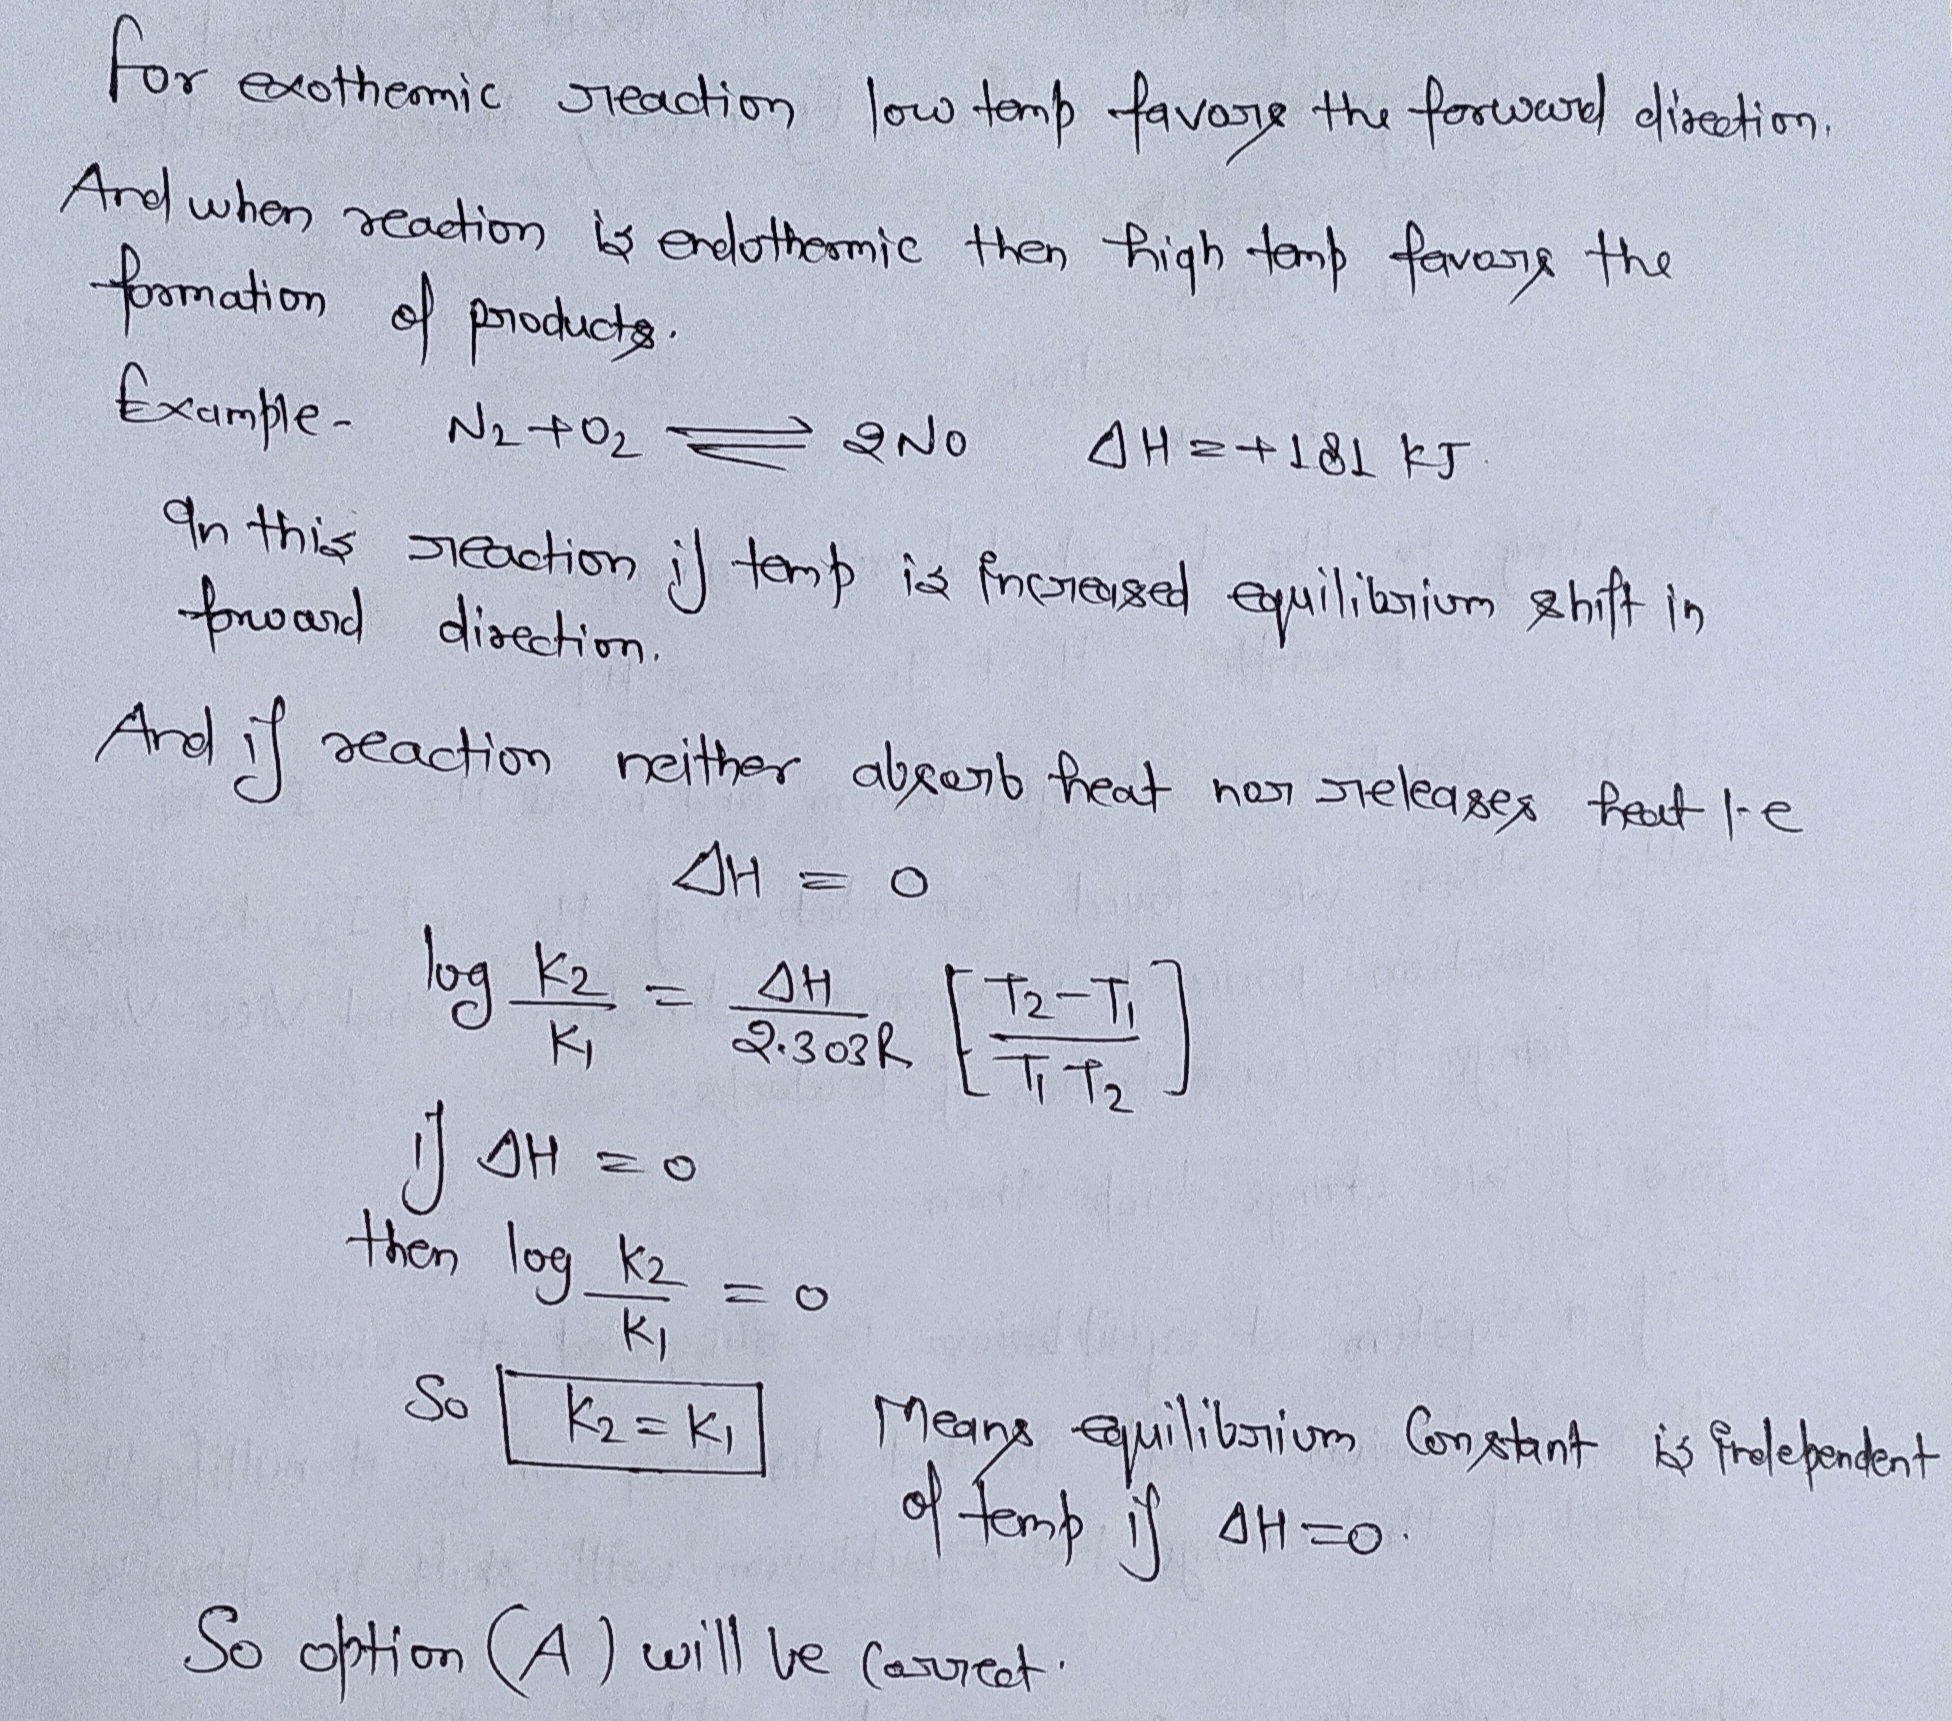 For exothermic reaction low temp favors the forward direction.
And when reaction is endothermic then high temp favors the
formation of products.
Example- N₂ + O₂ ⇌ 2NO ΔH = +181 kJ
In this reaction if temp is increased equilibrium shift in
forward direction.
And if reaction neither absorb heat nor releases heat i-e
ΔH = 0
log K₂/K₁ = ΔH/2.303R [T₂-T₁/T₁T₂]
if ΔH = 0
then log K₂/K₁ = 0
So K₂ = K₁ Means equilibrium Constant is independent
of temp if ΔH = 0.
So option (A) will be correct.